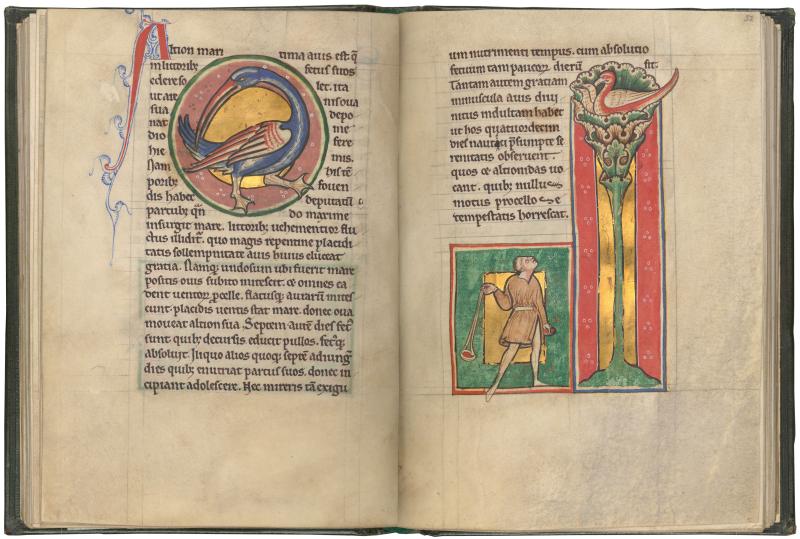 Altion mari tima auis est. q̄
in littorib; fetus suos
edere so let. ita
ut are in soua
sua depo
nat me
dio fere
hie mis.
Nam his tē
porib; fouen
dis habet deputatū
partub; qn̄ do marime
insurgit mare. littorib; uehementior flu
ctus illidit̄. quo magis repentine placidi
tatis sollempnitate auis huius eluceat
gratia. Namq; undosum ubi fuerit mare
positis ouis subito mitescit. et omnes ca
dent uentoꝝ ꝓcelle. flatusq; auraꝝ mites
cunt. placidis uentis stat mare. donec oua
moueat altion sua. Septem autē dies
sunt quib; decursis educit pullos.
absoluit. quoq; septē
dies quib; enutriat partus suos. donec in
cipiant adolescere. Nec mireris tā exigu
52
um nutrimenti tempus. cum absolutio
fetuum tam paucoꝝ dierū sit.
Tantam autem gratiam
minuscula auis diui
nitus indultam habet
ut hos quatuordecim
dies nautici p̄sumpte se
renitatis obseruent.
quos et altionidas uo
cant. quib; nullus
motus procellose
tempestatis horrescat.